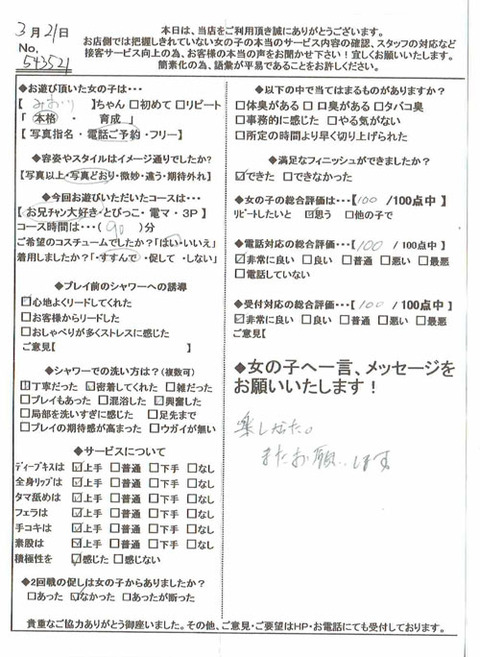 3月21日
No.
543521
本日は、当店をご利用頂き誠にありがとうございます。
お店側では把握しきれていない女の子の本当のサービス内容の確認、スタッフの対応など
接客サービス向上の為、お客様の本当の声をお聞かせ下さい！宜しくお願いいたします。
簡素化の為、語彙が平易であることをお許しください。
◆お遊び頂いた女の子は・・・
【 みおり 】ちゃん □初めて □リピート
「 本格 ・ 育成 」
【 写真指名・電話ご予約・フリー】
◆容姿やスタイルはイメージ通りでしたか?
【写真以上・写真どおり・微妙・違う・期待外れ】
◆今回お遊びいただいたコースは・・・
【お兄チャン大好き・とびっこ・電マ・3P】
コース時間は・・・( 90 )分
ご希望のコスチュームでしたか?「はい・いいえ」
着用しましたか?「・すすんで ・促して ・しない」
◆プレイ前のシャワーへの誘導
☑心地よくリードしてくれた
□お客様からリードした
□おしゃべりが多くストレスに感じた
ご意見【 】
◆シャワーでの洗い方は?（複数可）
☑丁寧だった ☑密着してくれた □雑だった
□プレイもあった □混浴した ☑興奮した
□局部を洗いすぎに感じた □足先まで
□プレイの期待感が高まった □ウガイが無い
◆サービスについて
ディープキスは ☑上手 □普通 □下手 □なし
全身リップは ☑上手 □普通 □下手 □なし
タマ舐めは ☑上手 □普通 □下手 □なし
フェラは ☑上手 □普通 □下手 □なし
手コキは ☑上手 □普通 □下手 □なし
素股は ☑上手 □普通 □下手 □なし
積極性を ☑感じた □感じない
◆2回戦の促しは女の子からありましたか？
□あった ☑なかった □あったが断った
◆以下の中で当てはまるものがありますか？
□体臭がある □口臭がある □タバコ臭
□事務的に感じた □やる気がない
□所定の時間より早く切り上げられた
◆満足なフィニッシュができましたか？
☑できた □できなかった
◆女の子の総合評価は・・・【 100 /100点中】
リピートしたいと ☑思う □他の子で
◆電話対応の総合評価・・・【 100 /100点中】
☑非常に良い □良い □普通 □悪い □最悪
□電話していない
◆受付対応の総合評価・・・【 100 /100点中】
☑非常に良い □良い □普通 □悪い □最悪
ご意見【 】
◆女の子へ一言、メッセージを
お願いいたします！
またお願いします
貴重なご協力ありがとう御座いました。その他、ご意見・ご要望はHP・お電話にても受付しております。